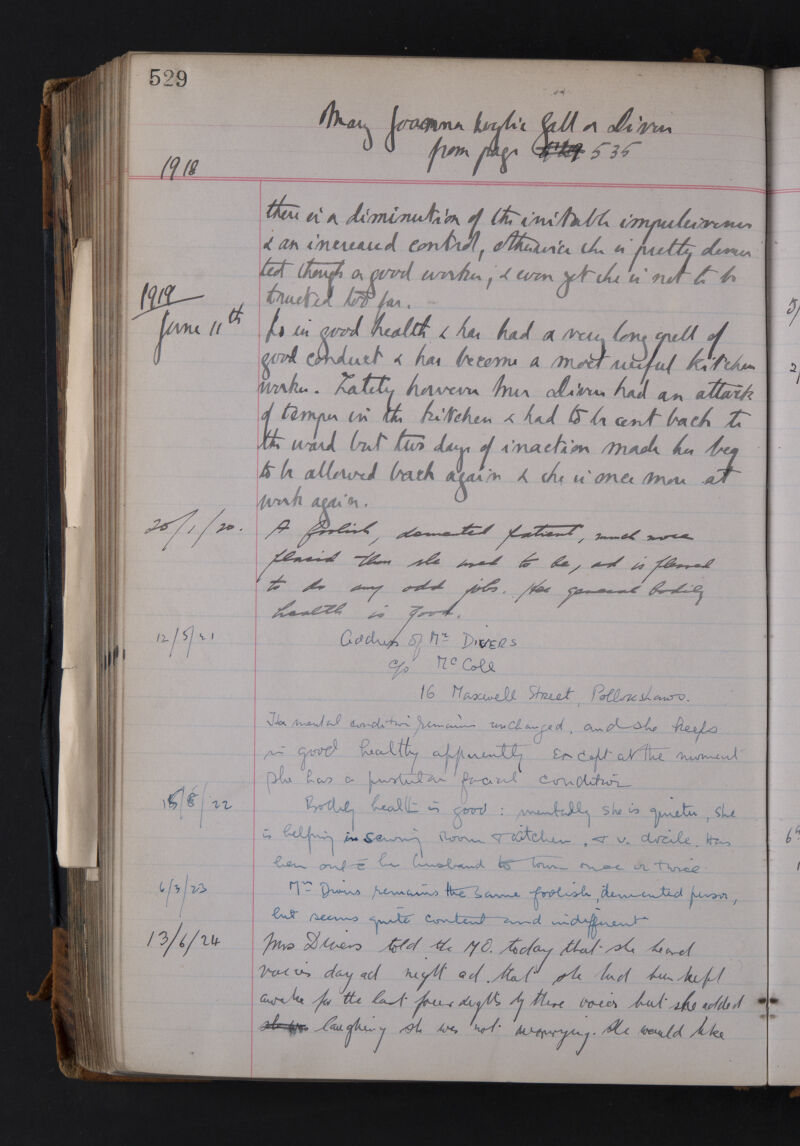 529
Mary Joanna Gall or Divers
from page 529 535
1918
there is a diminution of the irritable impulsiveness
& an increased control, otherwise she is pretty demen
ted though a good worker, & even yet she is not to be
trusted too far. —
1919
June 11th Is in good health & has had a very long spell of
good conduct & has become a most useful kitchen
worker. Lately however Mrs Divers had an attack
of temper in the kitchen & had to be sent back to
the ward but two days of inaction made her beg
to be allowed back again & she is once more at
work again.
20/1/20. A foolish, demented patient, much more
placid than she used to be, and is pleased
to do any odd jobs. Her general bodily
health is good.
12/5/21 Address of Mr DIVERS
c/o McColl
16 Maxwell Street, Pollokshaws.
Her mental condition remains unchanged, and she keeps
in good healthy apparently Except at the moment
she has a pustular facial condition
15/8/22 Bodily health is good: mentally she is quieter, she
is helping in sewing room & kitchen, & v. docile. Has
been out c̄ her husband to town once or twice.
6/3/23 Mrs Divers remains the same foolish, demented person,
but seems quite content and indifferent
13/6/24 Mrs Divers told the M.O. today that she heard
voices day and night and that she had been kept
awake for the last four nights by these voices but she added
she was laughing she was not worrying. She would like